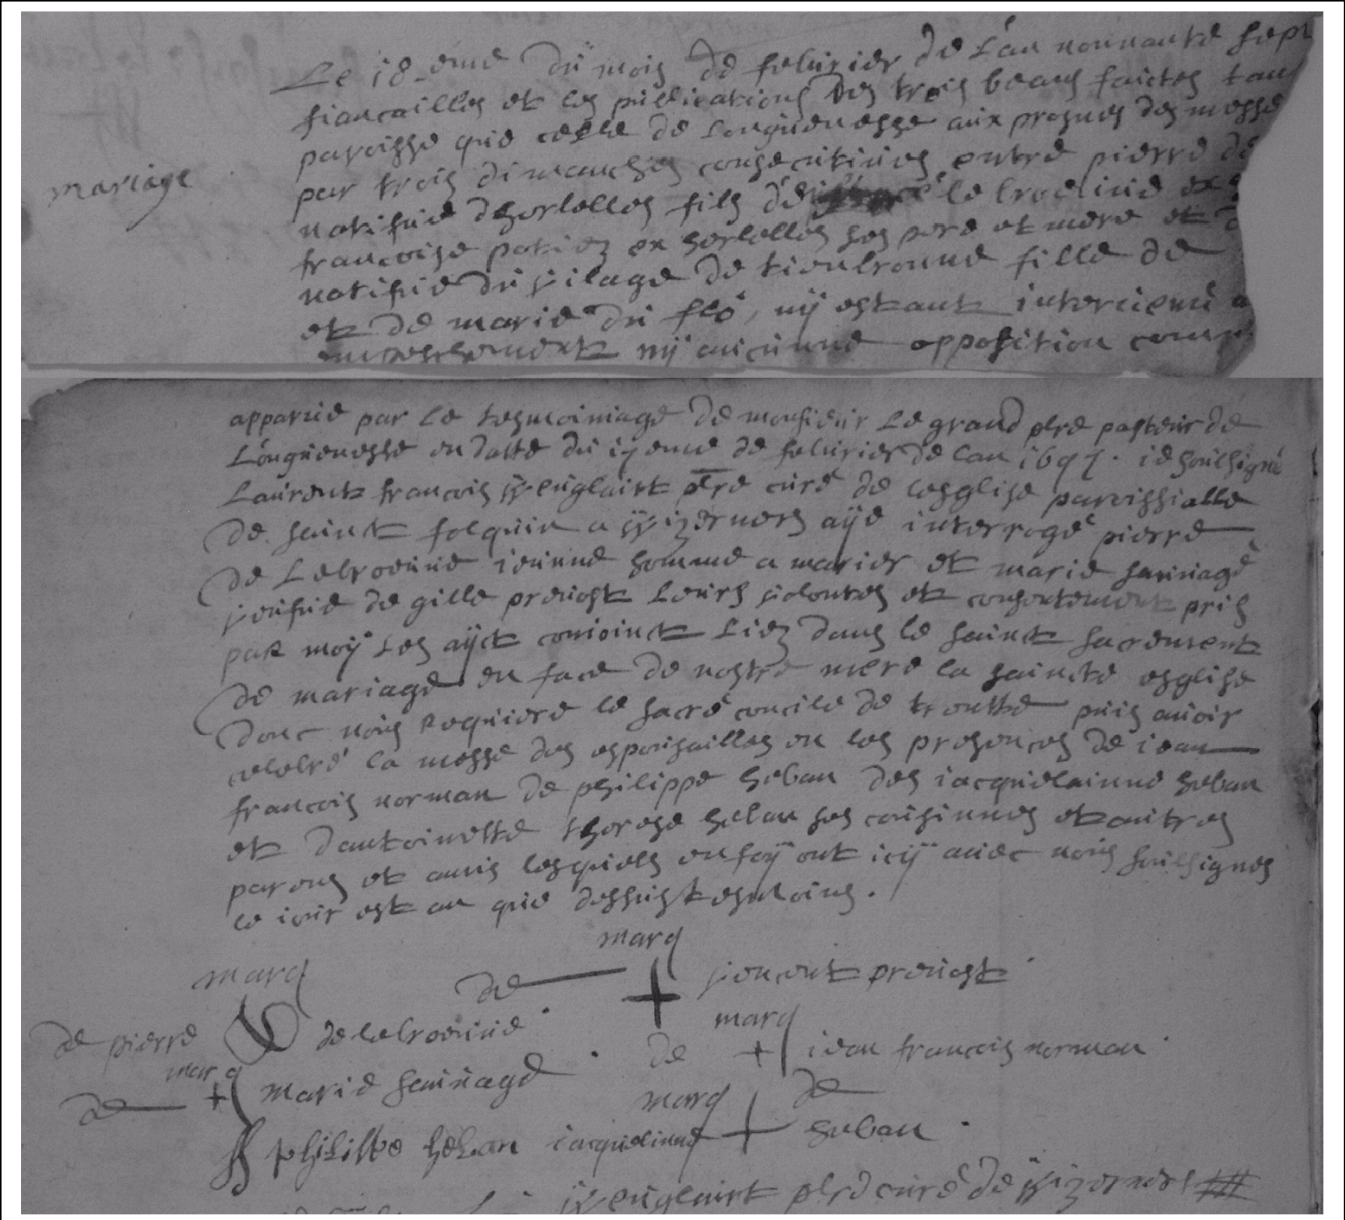 Le 18 eme du mois de febvrier de L'an nonnante sept
fiancailles et les publications des trois bans faictes tan
paroisse que celle de Longuenesse aux prosnes des messe
mariage
par trois dimanches consecutives entre pierre de
natifue dhorbelles fils de le broeuue ex
francoise potiez ex herbelles ses pere et mere et
natifue du vilage de tienbronne fille de
et de marie du flo, nÿ estant intervenu a
empeschement nÿ aucunne opposition comm
apparue par le tesmoiniage de monsieur Le grand pbre pasteur de
Longuenesse en datte du 17 eme de febvrier de lan 1697. ie soubsigné
Laurent francois Wenglaint pbre curé de lesglise paroissialle
de saint folquin a Wizernes aÿe interrogé pierre
de Lebroeuue ieunne homme a marier et marie sauuage
veufue de gille preuost Leurs volontes et consentement pris
par moÿ Les aÿt conioinct Liez dans le sainct sacrement
de mariage en face de nostre mere la saincte esglise
donc nous Requiere le sacré concile de trentte puis auoir
celebré la messe des espousailles en les presences de iean
francois norman de philippe heban des iacquelainne heban
et dantoinette therese heban ses cousinnes et autres
parens et amis lesquels en foÿ ont icÿ auec nous soubsignes
le iour est an que dessus tesmoins.
marq
marq
de + vincent preuost
de pierre de lebroeuue
marq
de + iean francois norman
marq
de + marie sauuage
marq
de
philippe heban iacquelinne + heban
Wenglaint pbre curé de Wizernes